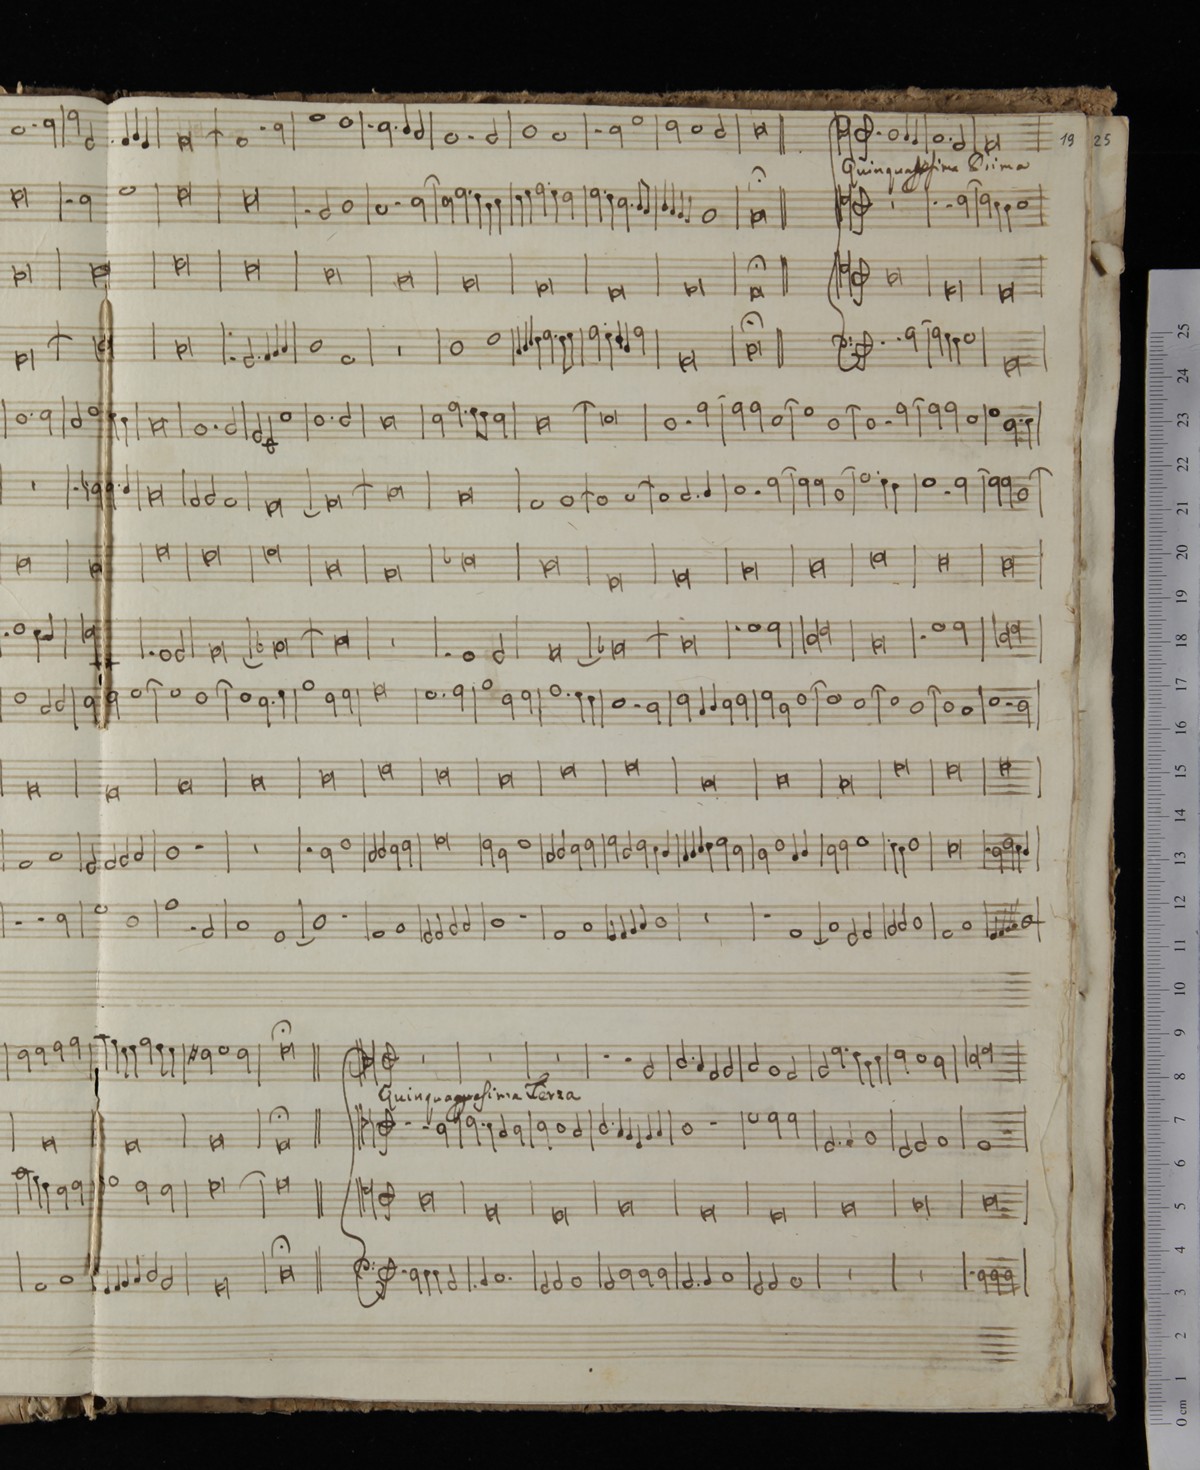 19 25
Quinquagesima Prima
Quinquagesima Terza
25
24
23
22
21
20
19
18
17
16
15
14
13
12
11
10
9
8
7
6
5
4
3
2
1
0 cm